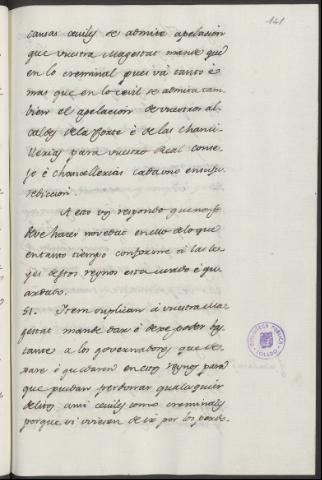 141
causas ceviles se admite apelacion
que vuestra Magestad mande que
en lo creminal pues vá tanto é
mas que en lo cevil se admita tam-
bien el apelacion de vuestros al-
caldes de la Corte é de las Chanci-
llerias para vuestro Real conse-
jo é chancellerias cada uno en su ju-
rediccion.
A esto vos respondo que no se
deve hacer novedad en ello de lo que
en tanto tiempo conforme á las le-
yes destos reynos está usado é gu-
ardado.
51. Item suplican á vuestra Ma-
gestad mande dar é dexe poder bas-
tante a los governadores que de-
xare é quedaren en estos reynos para
que puedan perdonar qualesquier
delitos ansi ceviles como creminales
porque si viviesen de ir por los perdo-
BIBLIOTECA PUBLICA
TOLEDO